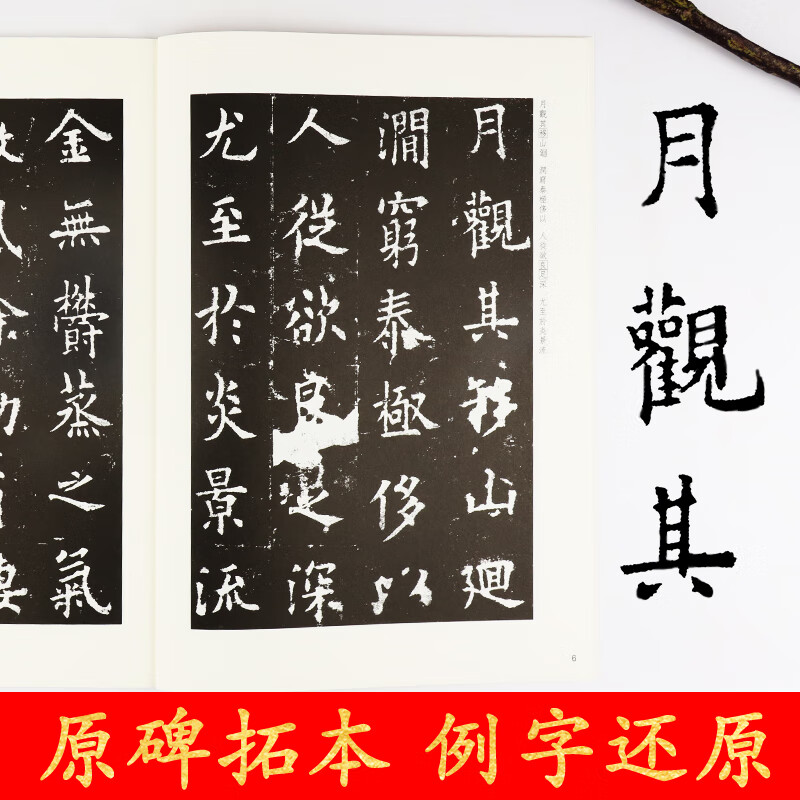 月觀其
月觀其移山廻 澗窮泰極侈以 人從欲良足深 尤至於炎景流
月觀其移山廻
澗窮泰極侈以
人従欲良足深
尤至於炎景流
金無欝蒸之氣
6
原碑拓本 例字还原